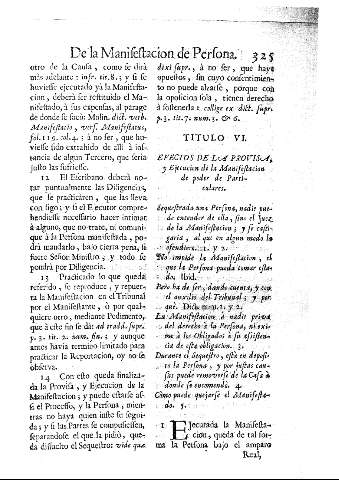 De la Manifestacion de Persona. 325
otro de la Causa, como se dirá
más adelante: infr. tit. 8. ; y si se
huviesse executado yà la Manifesta-
cion, deberá ser restituido el Ma-
nifestado, à sus expensas, al parage
de donde se sacò: Molin. dict. verb.
Manifestatio, vers. Manifestatus,
fol. 219. col. 4. : à no ser, que hu-
viesse sido extrahido de alli à ins-
tancia de algun Tercero, que seria
justo las sufriesse.
12 El Escribano deberá no-
tar puntualmente las Diligencias,
que se practicáren, que las lleva
con sigo; y si el Executor compre-
hendiesse necessario hacer intimar
à alguno, que no trate, ni comuni-
que à la Persona manifestada, po-
drá mandarlo, bajo cierta pena, si
fuere Señor Ministro; y todo se
pondrá por Diligencia.
13 Practicado lo que queda
referido, se reproduce, y repor-
ta la Manifestacion en el Tribunal
por el Manifestante, ò por qual-
quiere otro, mediante Pedimento,
que à este fin se dá: ad tradd. supr.
p. 3. tit. 2. num. fin. : y aunque
antes havia termino limitado para
practicar la Reportacion, oy no se
observa.
14 Con esto queda finaliza-
da la Provisa, y Execucion de la
Manifestacion; y puede estarse as-
si el Processo, y la Persona, mien-
tras no haya quien inste se segui-
da; y si las Partes se compusiessen,
separandose el que la pidió, que-
da disuelto el Sequestro: vide que
dixi supr. à no ser, que haya
opuestos, sin cuyo consentimien-
to no puede alzarse, porque con
la oposicion sola, tienen derecho
à sostenerla: collige ex dict. supr.
p. 3. tit. 7. num. 3. & 6.
TITULO VI.
EFECTOS DE LA PROVISA,
y Execucion de la Manifestacion
de poder de Parti-
culares.
Sequestrada una Persona, nadie pue-
de entender de ella, sino el Juez
de la Manifestacion; y se casti-
garia, al que en algun modo la
ofendiere. 1. y 2.
No impide la Manifestacion, el
que la Persona pueda tomar esta-
do: Ibid.
Pero ha de ser, dando cuenta, y con
el auxilio del Tribunal; y por
qué. Dict. num. 1. y 2.
La Manifestacion à nadie priva
del derecho à la Persona, ni exi-
me à los Obligados à su assisten-
cia de esta obligacion. 3.
Durante el Sequestro, está en deposi-
to la Persona, y por justas cau-
sas puede removerse de la Casa à
donde se encomendò. 4.
Cómo puede quejarse el Manifesta-
do. 5.
1 Executada la Manifesta-
cion, queda de tal for-
ma la Persona bajo el amparo
Real,